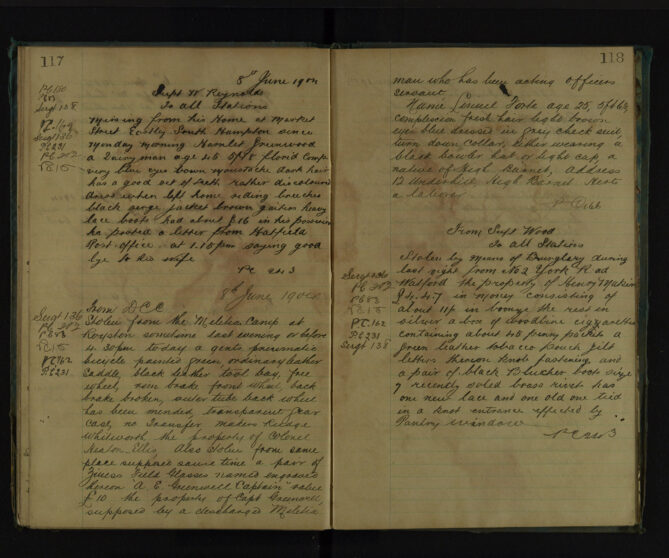 117
8th June 1904
PC 130
PC 83
Sergt 138
Sergt 136
PC 231
PC 282
PC 15
Supt W. Reynolds
To all Stations
Missing from his Home at Market
Street Eastly South Hampton since
Monday morning Hamlet Greenwood
a Dairy man age 46 5ft 8 florid Comp
very blue eyes brown moustache dark hair
has a good set of teeth rather discoloured
dress when left home riding breeches
black serge jacket brown gaiters heavy
lace boots had about £16 in his possession
he posted a letter from Hatfield
Post office at 1.10 pm saying good
bye to his wife
PC 243
8th June 1904
Sergt 136
PC 282
PC 83
PC 15
PC 162
PC 231
From DCC
Stolen from the Militia Camp at
Royston sometime last evening or before
pm today a gents pneumatic
bicycle painted green, ordinary leather
Saddle, black leather tool bag, free
wheel, rim brake front wheel, back
brake broken, outer tube back wheel
has been mended, transparent gear
Case, no Transfer makers Rudge
Whitworth the property of Colonel
Heaton Ellis Also stolen from same
place supposed same time a pair of
Zeiss Field Glasses named engraved
thereon "A. E. Greenwell Captain" value
£10 the property of Capt Greenwell,
supposed by a discharged Militia
118
man who has been acting officers
servant.
Name Lemuel Forte age 25, 5ft 6½
complexion fresh hair light brown
eyes blue dressed in grey check suit,
turn down Collar, either wearing a
black bowler hat or light cap, a
native of High Barnet, Address
12 Underhill High Barnet Herts
a labourer
PC 166
From Supt Wood
To all Stations
Sergt 136
PC 282
PC 83
PC 15
PC 162
PC 231
Sergt 138
Stolen by means of Burglary during
last night from No 2 York Road
Watford the property of Henry
£4.4.7 in money consisting of
about 11/- in bronze the rest in
silver a box of Woodbine cigarettes
containing about 40 penny packets a
green leather tobacco pouch gilt
letters thereon knob fastening and
a pair of black Blucher boots size
7 recently soled brass rivets has
one new lace and one old one tied
in a knot entrance effected by
Pantry window
PC 243